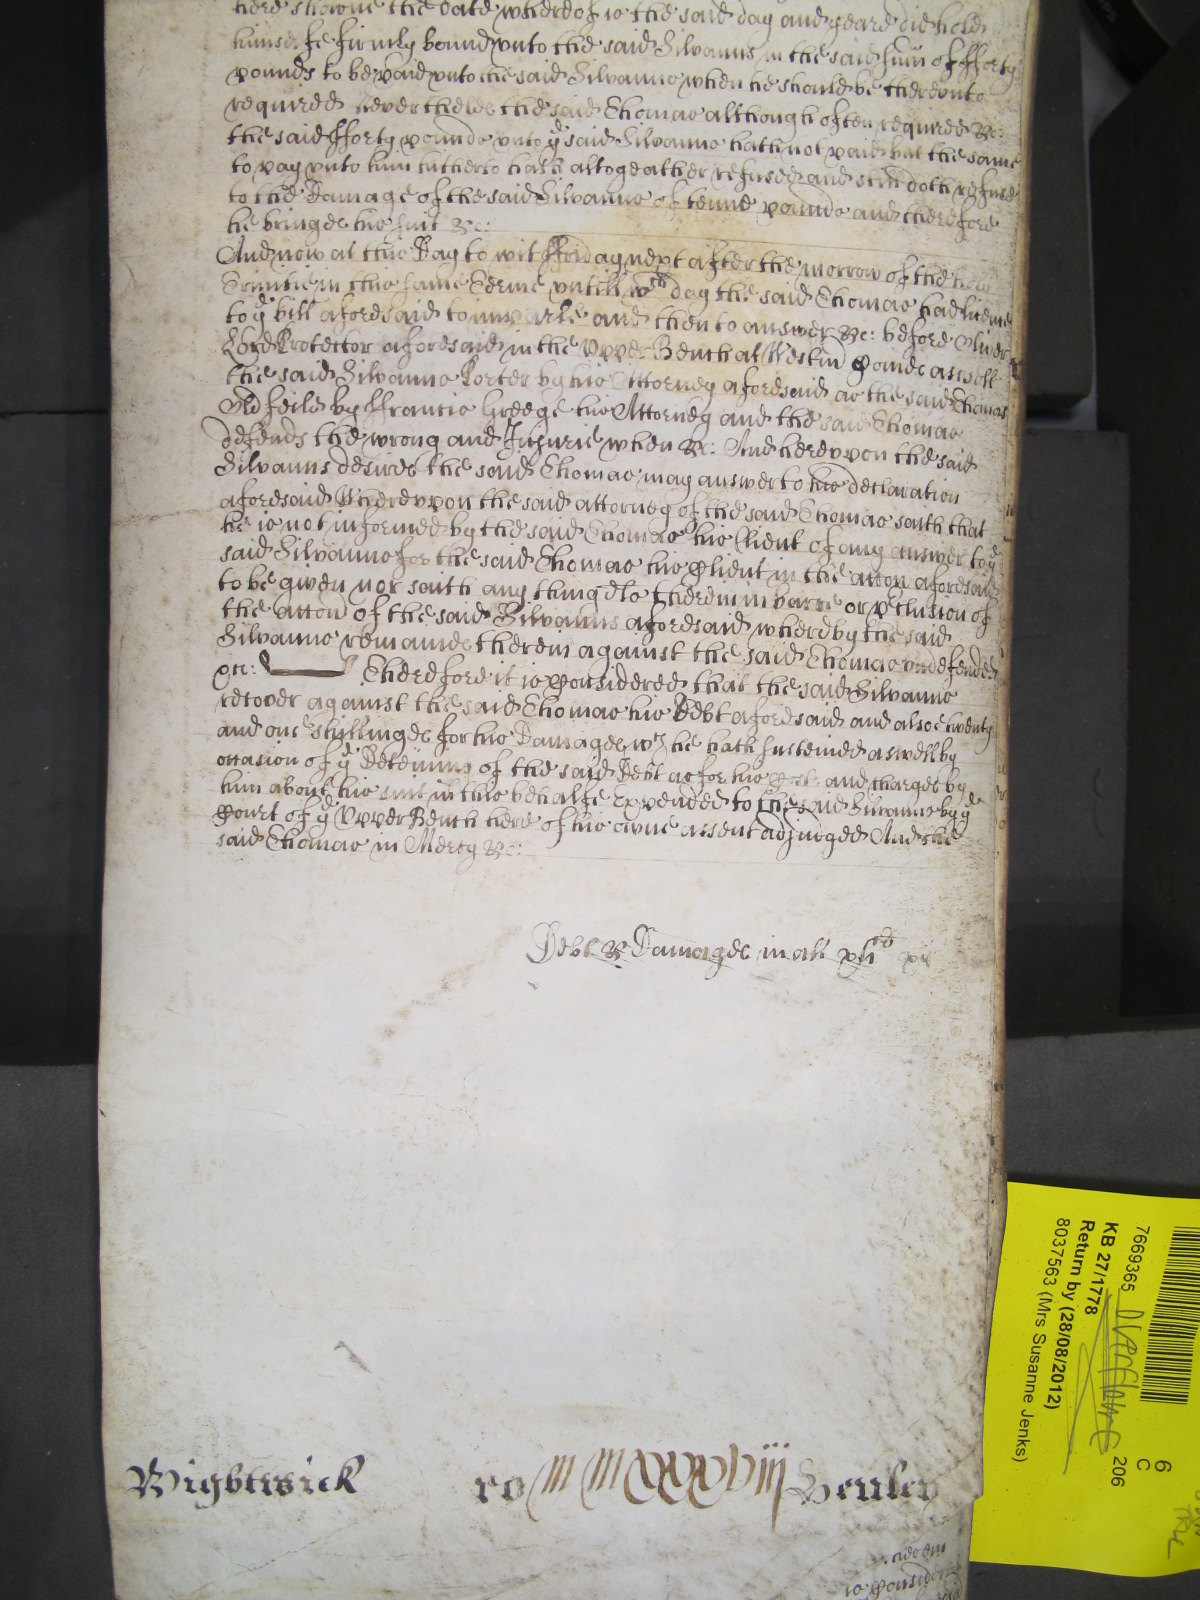 here shewne the date whereof is the said day and yeare did hold
himselfe firmly bound unto the said Silvanus in the said sum of fforty
pounds to be paid unto the said Silvanus when he should be thereunto
required Neverthelese the said Thomas although often required &c:
the said fforty pounds unto ye said Silvanus hath not paid but the same
to pay unto him hitherto hath altogeather refused and still doth refuse
to the Damage of the said Silvanus of tenne pounds and therefore
he bringes his suit &c:
And now at this Day to wit ffriday next after the morrow of the holy
Trinitie in this same Terme untill wch day the said Thomas had licence
to ye bill aforesaid to imparle and then to answer &c: before Oliver
Lord Protector aforesaid in the Upper Bench at Westm Comes aswell
the said Silvanus Porter by his Attorney aforesaid as the said Thomas
Oldfeild by ffrancis Greege his Attorney and the said Thomas
defends the wrong and Injurie when &c: And hereupon the said
Silvanus desires the said Thomas may answer to his declaration
aforesaid Whereupon the said attorney of the said Thomas saith that
he is not informed by the said Thomas his Client of any answer to ye
said Silvanus for the said Thomas his Client in the accon aforesaid
to be given nor saith any thing else therein in barre or preclusion of
the accon of the said Silvanus aforesaid whereby the said
Silvanus remaines therein against the said Thomas undefended
&c: Therefore it is Considered that the said Silvanus
recover against the said Thomas his Debt aforesaid and alsoe twenty
and one shillinges for his Damages wch he hath susteined aswell by
occasion of ye Deteining of the said Debt as for his Costs and charges by
him about his suit in this behalfe Expended to the said Silvanus by ye
Court of ye Upper Bench here of his owne assent adjudged And the
said Thomas in Mercy &c:
Debt & Damages in all xli
Wightwick ro MMXXXXVIII Henley
7669365
KB 27/1778
Return by (28/08/2012)
8037563 (Mrs Susanne Jenks)
6
C
206
is Considered